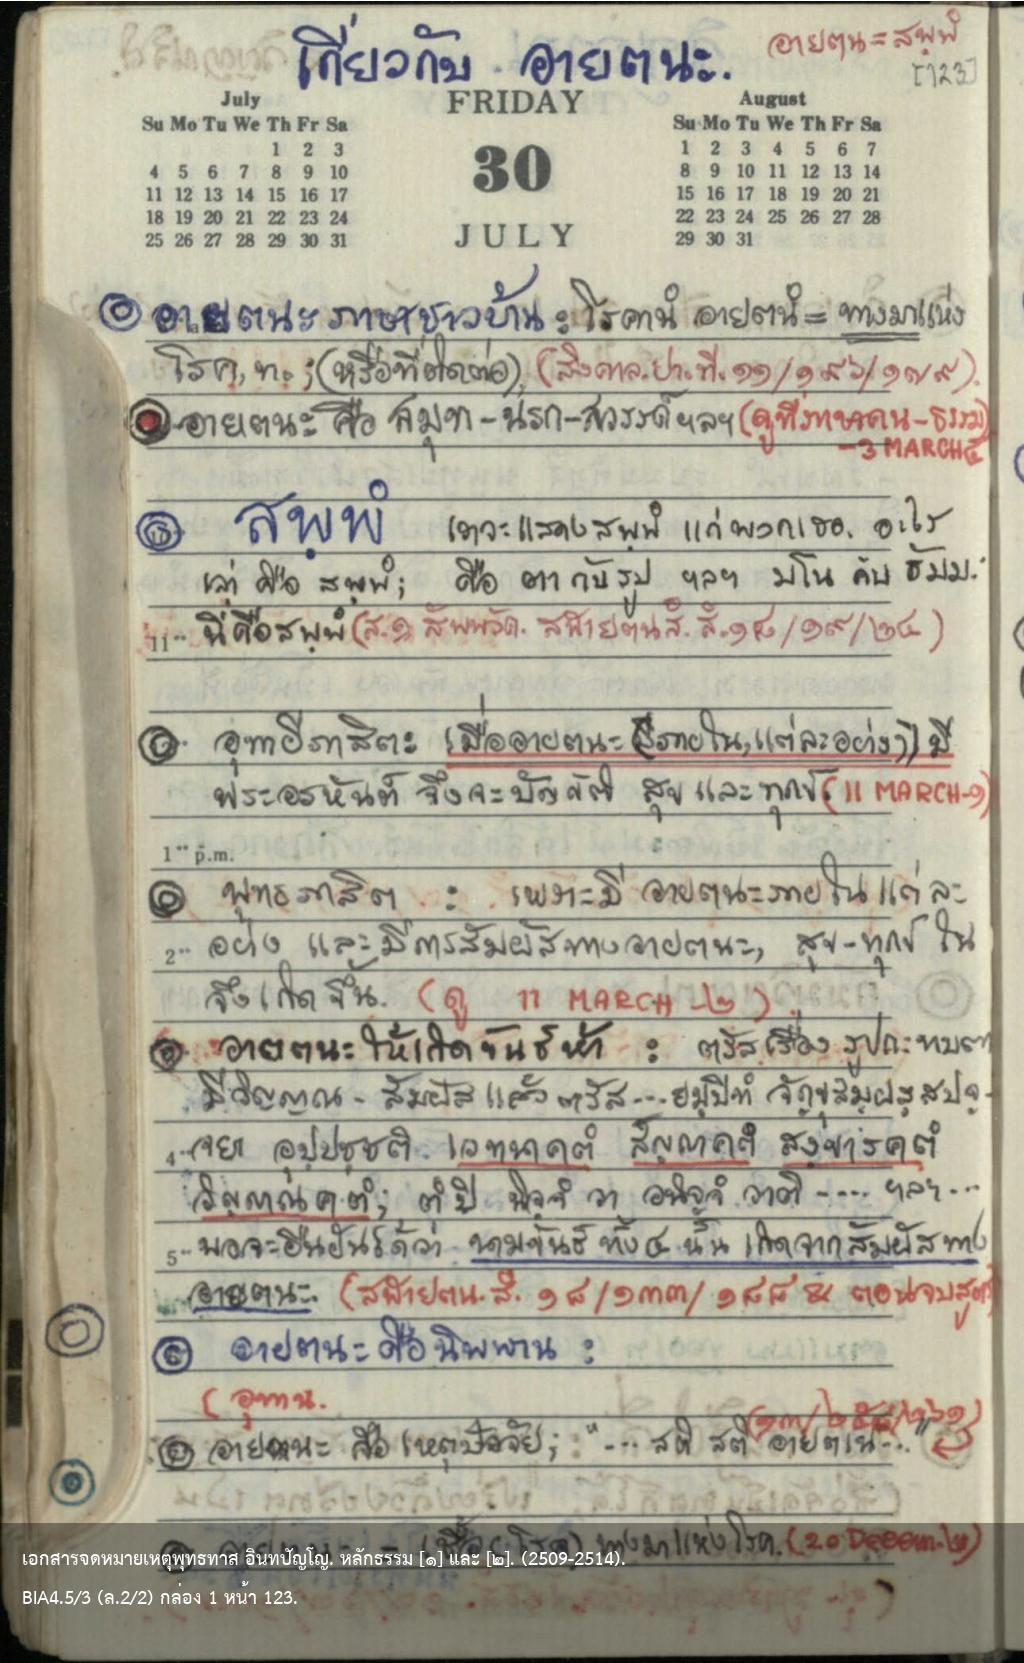 เกี่ยวกับ อายตนะ.
อายตน = สพฺพํ
[123]
July FRIDAY August
Su Mo Tu We Th Fr Sa Su Mo Tu We Th Fr Sa
1 2 3 1 2 3 4 5 6 7
4 5 6 7 8 9 10 30 8 9 10 11 12 13 14
11 12 13 14 15 16 17 15 16 17 18 19 20 21
18 19 20 21 22 23 24 22 23 24 25 26 27 28
25 26 27 28 29 30 31 JULY 29 30 31
อายตนะ ภาษาชาวบ้าน : โรคานํ อายตนํ = ทางมาแห่ง
โรค, ท. ; (หรือที่ติดต่อ) (สิงคาล. ปา. ที. ๑๑/๑๙๖/๑๗๙).
อายตนะ คือ สมุทฺ - นรก - สวรรค์ ฯลฯ (ดูที่ภาษาคน - ธรรม
- 3 MARCH ๕
สพฺพํ เราจะแสดง สพฺพํ แก่ พวกเธอ. อะไร
เล่า คือ สพฺพํ ; คือ ตา กับ รูป ฯลฯ มโน กับ ธัมม.
11 นี่คือ สพฺพํ (ส. ๑ สัพพวัค. สฬายตนสํ. สํ. ๑๘/๑๙/๒๔)
อุทายีภาสิต : เมื่ออายตนะ (ภายใน, แต่ละอย่างๆ) มี
พระอรหันต์ จึงจะบัญญัติ สุข และ ทุกข์ (11 MARCH - ๑)
1 p.m.
พุทธภาสิต : เพราะมี อายตนะภายใน แต่ ละ
2 อย่าง และ มีการสัมผัสทางอายตนะ, สุข - ทุกข์ ใน
จึงเกิดขึ้น. (ดู 11 MARCH - ๒)
อายตนะ ให้เกิดขันธ์ห้า : ตรัสเรื่อง รูปกระทบตา
มีวิญญาณ - สัมผัส แล้ว ตรัส --- ยมฺปิทํ จักฺขุสมฺผสฺสปจฺ-
4 จยา อุปฺปชฺชติ เวทนาคตํ สญฺญาคตํ สงฺขารคตํ
วิญฺญาณคตํ ; ตํ ปิ นิจฺจํ วา อนิจฺจํ วาติ ---- ฯลฯ ---
5 พอจะยืนยันได้ว่า นามขันธ์ ทั้ง ๔ นั้น เกิดจากสัมผัสทาง
อายตนะ. (สฬายตน. สํ. ๑๘/๑๓๓/๑๘๘ & ตอนจบสูตร
อายตนะ คือ นิพพาน :
( อุทาน.
อายตนะ คือ เหตุปัจจัย ; "--- สติ สติ อายตเน --."
ทางมาแห่งโรค. (20 Decem. ๒)
เอกสารจดหมายเหตุพุทธทาส อินทปัญโญ. หลักธรรม [๑] และ [๒]. (2509-2514).
BIA4.5/3 (ล.2/2) กล่อง 1 หน้า 123.